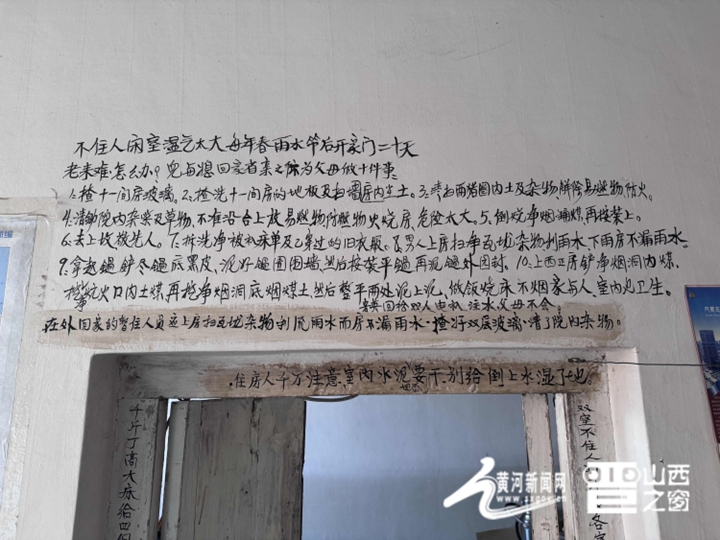 不住人闲室湿气太大每年春雨水节后开家门二十天
老来难怎么办？儿与媳回家省亲之际为父母做十件事：
1.揸十一间房玻璃。2.揸洗十一间房的地板及扫墙房内尘土。3.扫西猪圈内土及杂物,解除易燃物防火。
4.清院内杂柴及草物,不准沿台上放易燃物防燃物火烧房,危险太大。5.倒烧净烟煤,再按装上。
6.去上坟敬先人。7.拆洗净被和床单及穿过的旧衣服。8.男人上房扫净瓦垅杂物利雨水,下雨房不漏雨水
9.拿起锅铲尽锅底黑皮,泥好锅圈围墙,然后按装平锅再泥锅外围封。10.上西正房铲净烟洞内煤,
火口内土煤再挖净烟洞底烟煤土,然后整平两处泥上泥,做饭烧床不烟家与人,室内也卫生。
回给双人电机注水父母不会
在外回家的暂住人员应上房扫瓦垅杂物利流雨水而房不漏雨水。揸好双层玻璃。清了院内杂物。
住房人千万注意室内水泥要干,别给倒上水湿了地。
千斤丁高大床给四
双室不住人
各室
黄河新闻网
www.sxgov.cn
山西
之窗